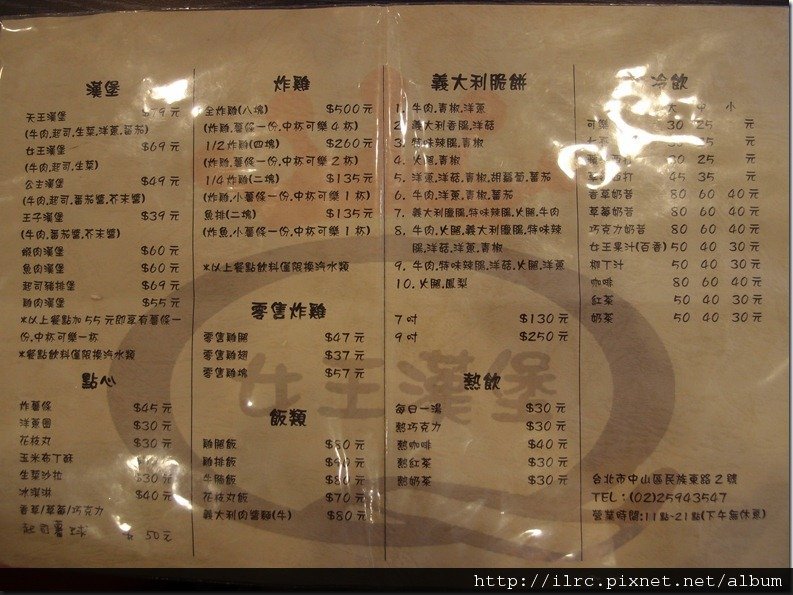 漢堡
天王漢堡 $79元
(牛肉.起司.生菜.洋蔥.蕃茄)
女王漢堡 $69元
(牛肉.起司.生菜)
公主漢堡 $49元
(牛肉.起司.蕃茄醬.芥末醬)
王子漢堡 $39元
(牛肉.蕃茄醬.芥末醬)
蝦肉漢堡 $60元
魚肉漢堡 $60元
起司豬排堡 $69元
雞肉漢堡 $55元
*以上餐點加55元即享有薯條一
份.中杯可樂一杯
*餐點飲料僅限換汽水類
點心
炸薯條 $45元
洋蔥圈 $30元
花枝丸 $30元
玉米夾
生菜沙拉 $30元
水 $40元
50元
炸雞
全炸雞(八塊) $500元
(炸雞.薯條一份.中杯可樂4杯)
1/2炸雞(四塊) $260元
(炸雞.薯條一份.中杯可樂2杯)
1/4炸雞(二塊) $135元
(炸雞.小薯條一份.中杯可樂1杯)
魚排(二塊) $135元
(炸魚.小薯條一份.中杯可樂1杯)
*以上餐點飲料僅限換汽水類
零售炸雞
零售雞腿 $47元
零售雞翅 $37元
零售雞塊 $57元
飯類
雞腿飯 元
雞排飯 元
牛腩飯 $80元
花枝丸飯 $70元
義大利肉醬麵(牛) $80元
義大利脆餅
1. 牛肉.青椒.洋蔥
2. 義大利香腸.洋菇
3. 特味辣腿.青椒
4. 火腿.青椒
5. 洋蔥.洋菇.青椒.胡蘿蔔.蕃茄
6. 牛肉.洋蔥.青椒.蕃茄
7. 義大利臘腿.特味辣腿.火腿.牛肉
8. 牛肉.火腿.義大利臘腿.特味辣
腿.洋菇.洋蔥.青椒
9. 牛肉.特味辣腿.洋菇.火腿.洋蔥
10. 火腿.鳳梨
7吋 $130元
9吋 $250元
熱飲
每日一湯 $30元
熱巧克力 $30元
熱咖啡 $40元
熱紅茶 $30元
熱奶茶 $30元
冷飲
大 中 小
可樂 30 25 元
30 25 元
30 25 元
45 35 元
香草奶昔 80 60 40元
草莓奶昔 80 60 40元
巧克力奶昔 80 60 40元
女王果汁(百香) 50 40 30元
柳丁汁 50 40 30元
咖啡 80 60 40元
紅茶 50 40 30元
奶茶 50 40 30元
女王漢堡
台北市中山區民族東路2號
TEL:(02)25943547
營業時間:11點-21點(下午無休息)
http://ilrc.pixnet.net/album